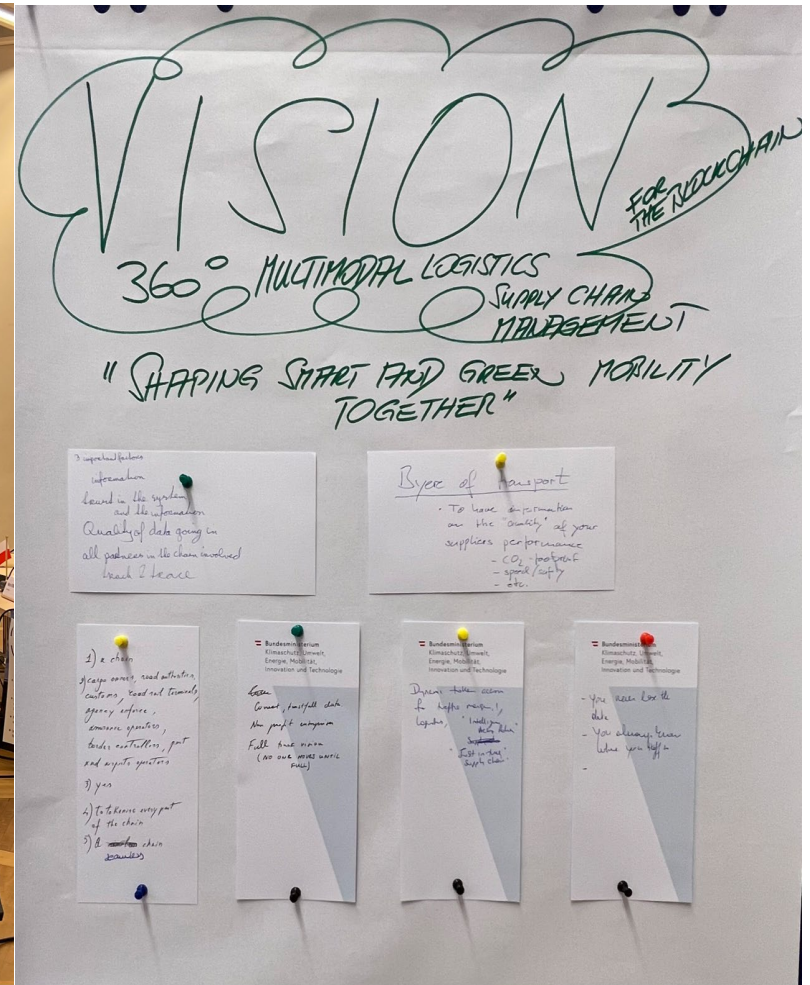 VISION
FOR
THE BLOCKCHAIN
360° MULTIMODAL LOGISTICS
SUPPLY CHAIN
MANAGEMENT
"SHAPING SMART AND GREEN MOBILITY
TOGETHER"
3 important factors
information
in the system
and the information
Quality of data going in
all partners in the chain involved
track & trace
of Transport
• To have information
on the "quality" of your
suppliers performance
- CO2-footprint
- speed/safety
- etc.
1) a chain
2) cargo owners, road authorities,
customs, road rail terminals,
agency
operators,
border controllers, port
and airports operators
3) yes
4) To tokenise every part
of the chain
5) A chain
seamless
Bundesministerium
Klimaschutz, Umwelt,
Energie, Mobilität,
Innovation und Technologie
Correct, trustfull data
Non profit
Full truck
(NO ONE MOVES UNTIL
FULL)
Bundesministerium
Klimaschutz, Umwelt,
Energie, Mobilität,
Innovation und Technologie
token
for
"Just-in-time"
Supply chain"
Bundesministerium
Klimaschutz, Umwelt,
Energie, Mobilität,
Innovation und Technologie
- You never lose the
data
- You always know
-